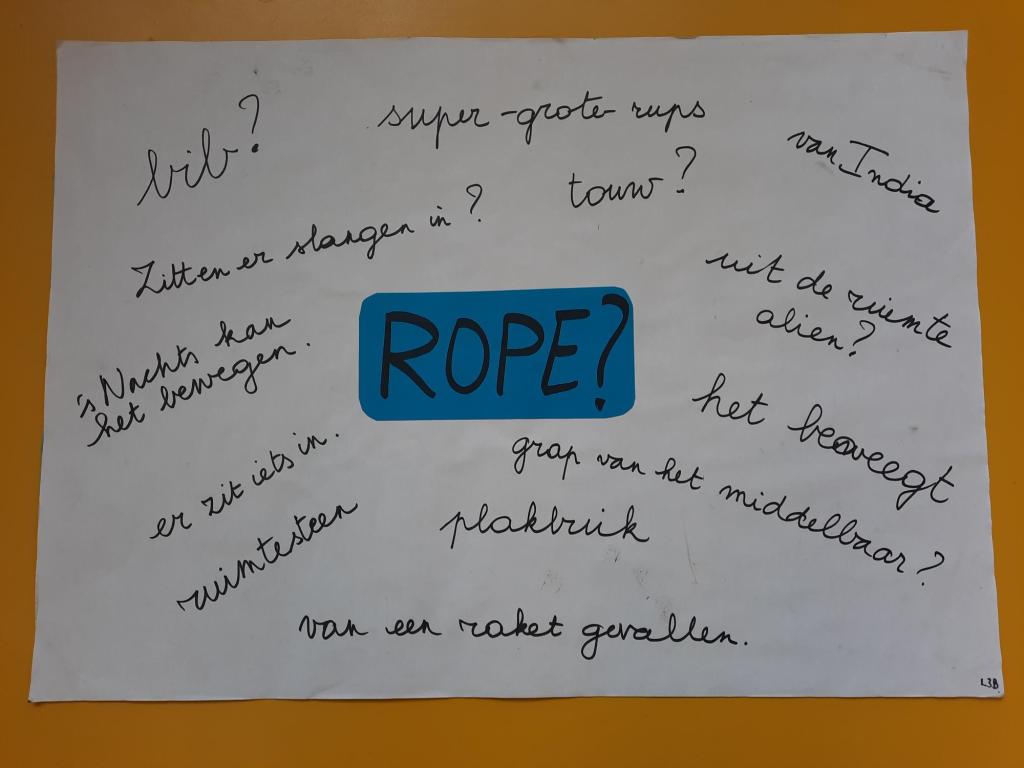 bib?
super-grote-rups
van India
touw?
Zitten er slangen in?
uit de ruimte
alien?
ROPE?
's Nachts kan
het bewegen.
het beweegt
er zit iets in.
grap van het middelbaar?
plakbuik
ruimtesteen
van een raket gevallen.
L3B